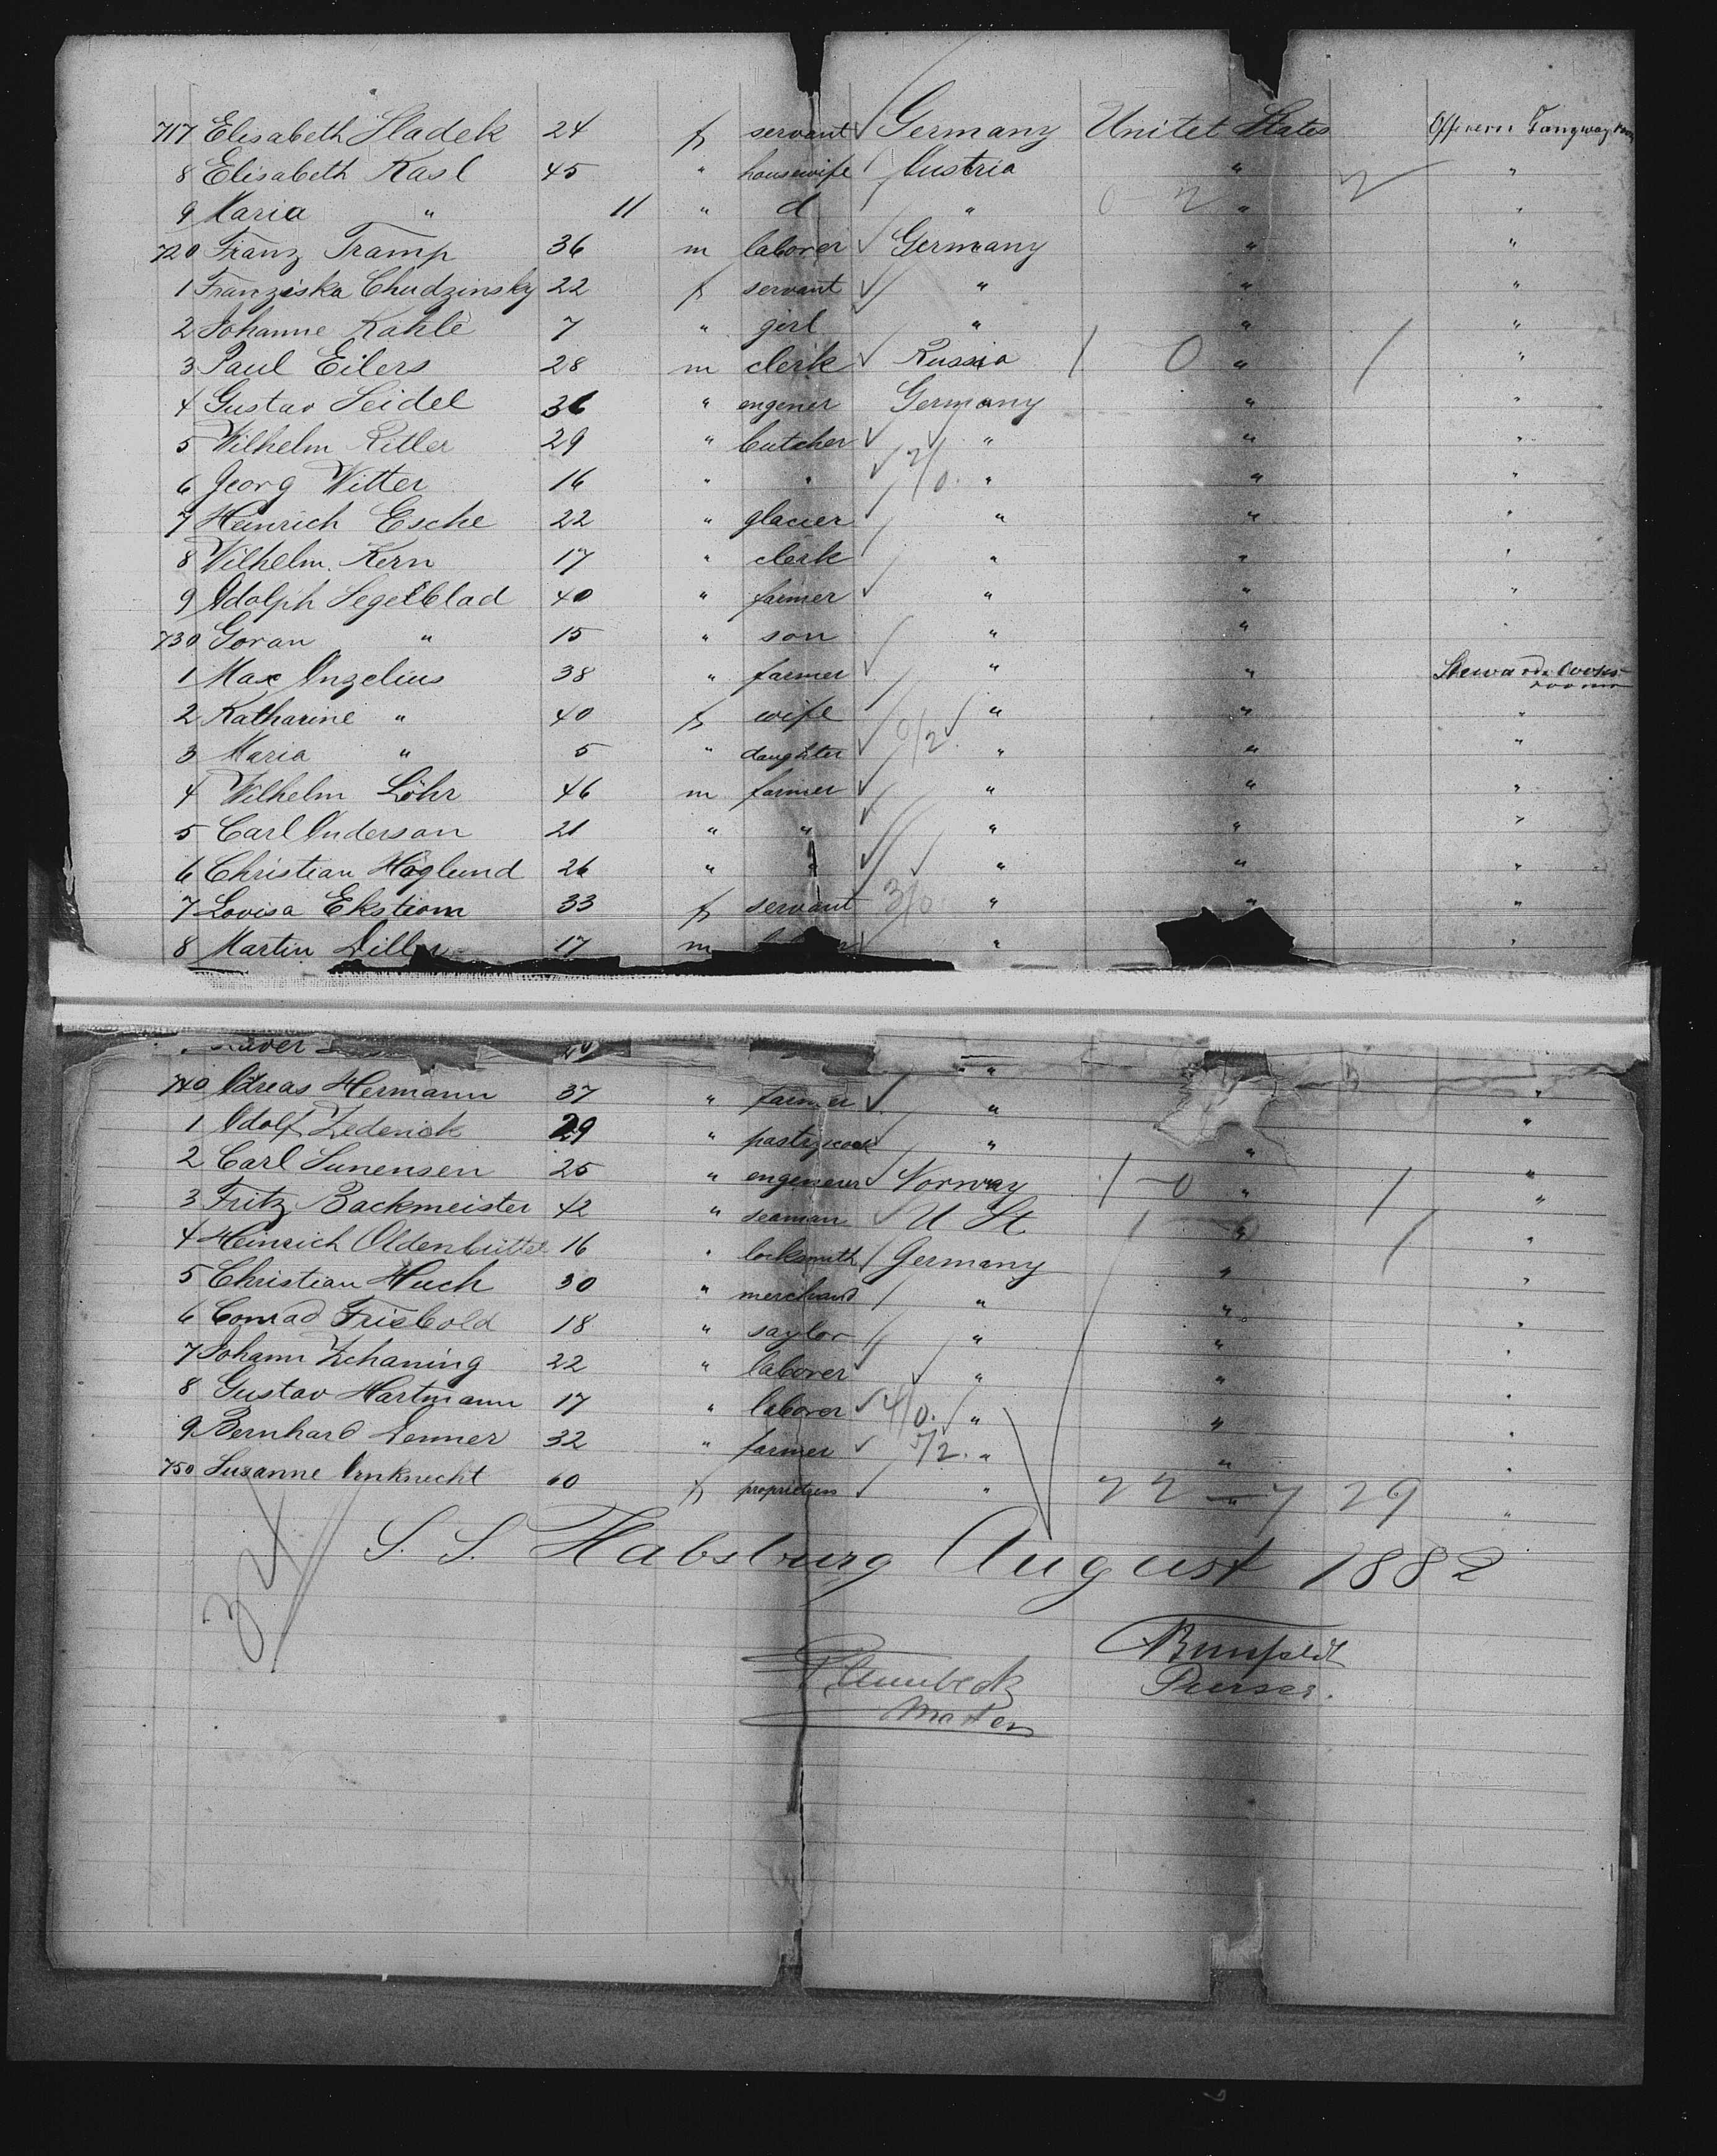 717 Elisabeth Sladek 24 f servant Germany Unitet States Officiers Gangway
8 Elisabeth Kasl 45 " housewife Austria " 2 "
9 Maria " 11 " d " 0 2 " "
720 Franz Tramp 36 m laborer Germany " "
1 Franziska Chudzinsky 22 f servant " " "
2 Johanne Kahle 7 " girl " " "
3 Paul Eilers 28 m clerk Russia 1 0 " 1 "
4 Gustav Seidel 36 " engener Germany " "
5 Wilhelm Ritler 29 " butcher " " "
6 Georg Witter 16 " " 2/0. " " "
7 Heinrich Esche 22 " glacier " " "
8 Wilhelm Kern 17 " clerk " " "
9 Adolph Segelblad 40 " farmer " " "
730 Goran " 15 " son " " "
1 Max Anzelius 38 " farmer " " Steward & Cooks room
2 Katharine " 40 f wife " " "
3 Maria " 5 " daughter 0/2 " " "
4 Wilhelm Löhr 46 m farmer " " "
5 Carl Anderson 21 " " " " "
6 Christian Höglund 26 " " " " "
7 Lovisa Ekstrom 33 f servant 3/0. " " "
8 Martin Diller 17 m " "
740 Adreas Hermann 37 " farmer " "
1 Adolf Zederick 29 " pastrycook " " "
2 Carl Sunensen 25 " engenerer Norway 1 - 0 " 1 "
3 Fritz Backmeister 42 " seaman U St. 1 - 0 " 1 "
4 Heinrich Oldenbüttel 16 " locksmith Germany " "
5 Christian Huch 30 " merchand " " "
6 Conrad Friebold 18 " saylor " " "
7 Johann Zchaning 22 " laborer " " "
8 Gustav Hartmann 17 " laborer 4/0. " " "
9 Bernhard Denner 32 " farmer 5/2. " " "
750 Susanne Arnknecht 60 f proprietress " 22 - 7 29 "
34
S. S. Habsburg August 1882
Purser.
Master